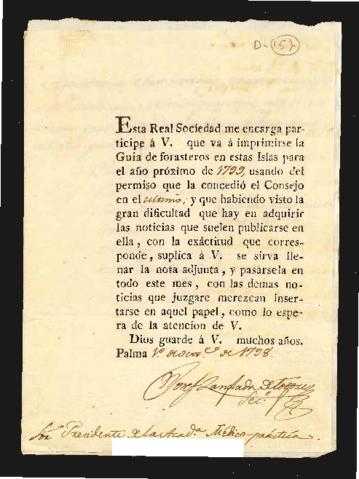 D-(57)
Esta Real Sociedad me encarga par-
ticipe á V. que va á imprimirse la
Guia de forasteros en estas Islas para
el año próximo de 1799, usando del
permiso que la concedió el Consejo
en el ultimo, y que habiendo visto la
gran dificultad que hay en adquirir
las noticias que suelen publicarse en
ella, con la exâctitud que corres-
ponde, suplica á V. se sirva lle-
nar la nota adjunta, y pasársela en
todo este mes, con las demas no-
ticias que juzgare merezcan inser-
tarse en aquel papel, como lo espe-
ra de la atencion de V.
Dios guarde á V. muchos años.
Palma 1º de de 1798
Josef de Togores
Sec.º
Sor. Presidente de la Acad.ª Médico-práctica.